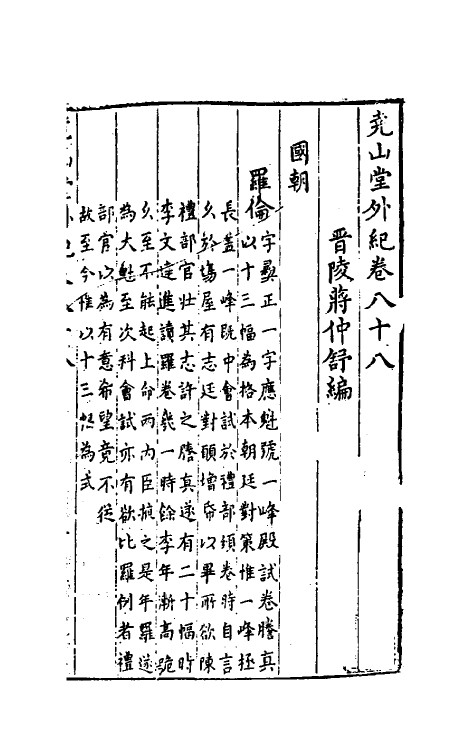 堯山堂外紀卷八十八
晉陵蔣仲舒編
國朝
羅倫字彞正一字應魁號一峰殿試卷謄真
以十三幅為格本朝廷對策惟一峰極
長蓋一峰既中會試於禮部領卷時自言
久於塲屋有志廷對願增帋以畢所欲陳
禮部官壮其志許之謄真遂有二十幅時
李文達進讀羅卷幾一時餘李年漸高跪
久至不能起上命两内臣掖之是年羅遂
為大魁至次科會試亦有欲比羅例者禮
部官以為有意希望竟不從
故至今惟以十三幅為式